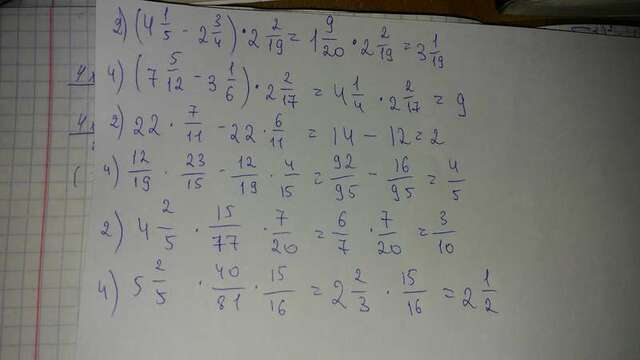 2) (4 1/5 - 2 3/4) · 2 2/19 = 1 9/20 · 2 2/19 = 3 1/19
4) (7 5/12 - 3 1/6) · 2 2/17 = 4 1/4 · 2 2/17 = 9
2) 22 · 7/11 - 22 · 6/11 = 14 - 12 = 2
4) 12/19 · 23/15 - 12/19 · 4/15 = 92/95 - 16/95 = 4/5
2) 4 2/5 · 15/77 · 7/20 = 6/7 · 7/20 = 3/10
4) 5 2/5 · 40/81 · 15/16 = 2 2/3 · 15/16 = 2 1/2